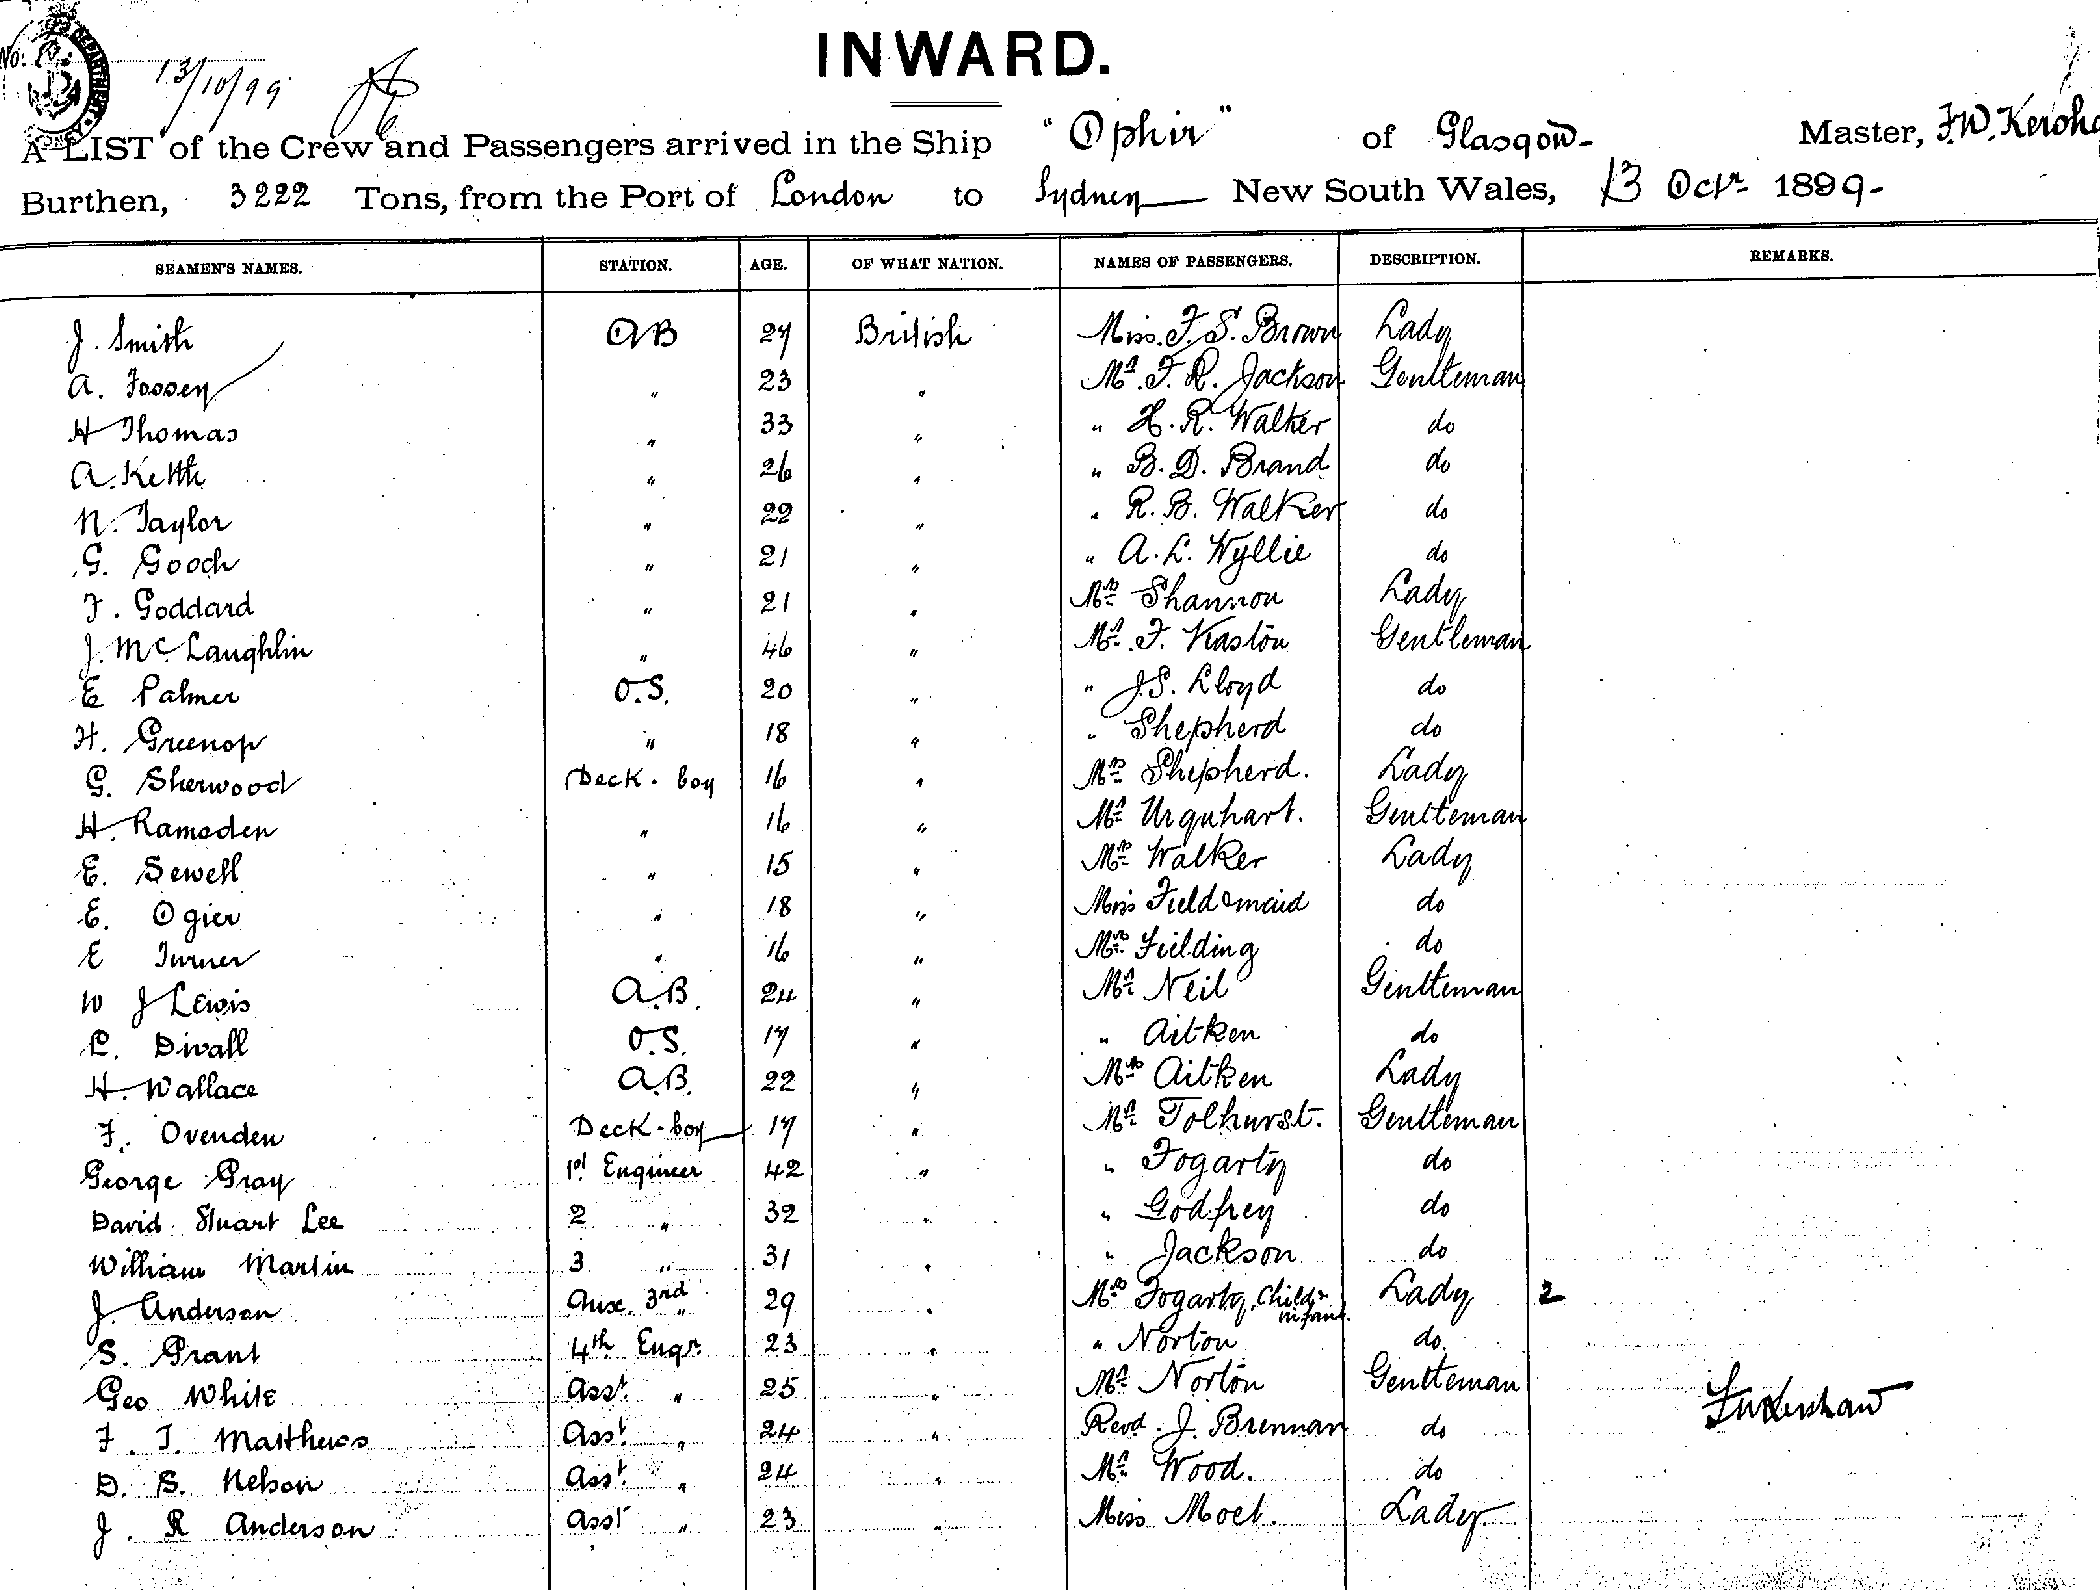 No:
13/10/99
INWARD.
A LIST of the Crew and Passengers arrived in the Ship "Ophir" of Glasgow- Master, F.W. Kersha
Burthen, 3222 Tons, from the Port of London to Sydney New South Wales, 13 Octr 1899-
SEAMEN'S NAMES. STATION. AGE. OF WHAT NATION. NAMES OF PASSENGERS. DESCRIPTION. REMARKS.
J. Smith AB 27 British Miss. F. S. Brown Lady
A. Fossey " 23 " Mr. F. R. Jackson Gentleman
H Thomas " 33 " " H. R. Walker do
A. Keith " 26 " " B. D. Brand do
N. Taylor " 22 " " R. B. Walker do
G. Gooch " 21 " " A. L. Wyllie do
F. Goddard " 21 " Mrs Shannon Lady
J. McLaughlin " 46 " Mr. F. Kaston Gentleman
E Palmer O.S. 20 " " J.S. Lloyd do
H. Greenop " 18 " " Shepherd do
G. Sherwood Deck-boy 16 " Mrs Shepherd. Lady
H. Ramsden " 16 " Mr Urquhart. Gentleman
E. Sewell " 15 " Mrs Walker Lady
E. Ogier " 18 " Miss Field & maid do
E Turner " 16 " Mrs Fielding do
W J Lewis A.B. 24 " Mr Neil Gentleman
C. Divall O.S. 17 " " Aitken do
H. Wallace A.B. 22 " Mrs Aitken Lady
F. Ovenden Deck-boy 17 " Mr Tolhurst. Gentleman
George Gray 1st Engineer 42 " " Fogarty do
David Stuart Lee 2 " 32 " " Godfrey do
William Martin 3 " 31 " " Jackson do
J. Anderson Aux. 3rd " 29 " Mrs Fogarty, Child & infant. Lady 2
S. Grant 4th Engr. 23 " " Norton do.
Geo White Asst. " 25 " Mr Norton Gentleman
F. T. Matthews Asst. " 24 " Revd. J. Brennan do
F W Kershaw
D. S. Nelson Asst. " 24 " Mr Wood. do
J. R Anderson Asst " 23 " Miss Moet. Lady